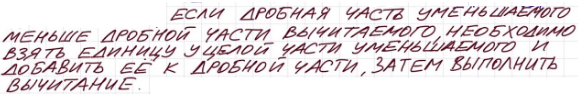 ЕСЛИ ДРОБНАЯ ЧАСТЬ УМЕНЬШАЕМОГО
МЕНЬШЕ ДРОБНОЙ ЧАСТИ ВЫЧИТАЕМОГО, НЕОБХОДИМО
ВЗЯТЬ ЕДИНИЦУ У ЦЕЛОЙ ЧАСТИ УМЕНЬШАЕМОГО И
ДОБАВИТЬ ЕЁ К ДРОБНОЙ ЧАСТИ, ЗАТЕМ ВЫПОЛНИТЬ
ВЫЧИТАНИЕ.